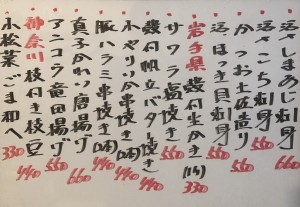 活しまあじ刺身 660
活さごち刺身 550
かつお土佐造り 550
活ほっき貝刺身 550
岩手県 殻付生かき(1ケ) 330
サワラ塩焼き 550
殻付帆立バター焼き 440
小やりいか串焼き(2本) 440
豚ハラミ串焼き(2本) 440
真子がれい唐揚げ 660
アンコウ竜田揚げ 550
神奈川 枝付き枝豆 440
小松菜ごま和へ 330